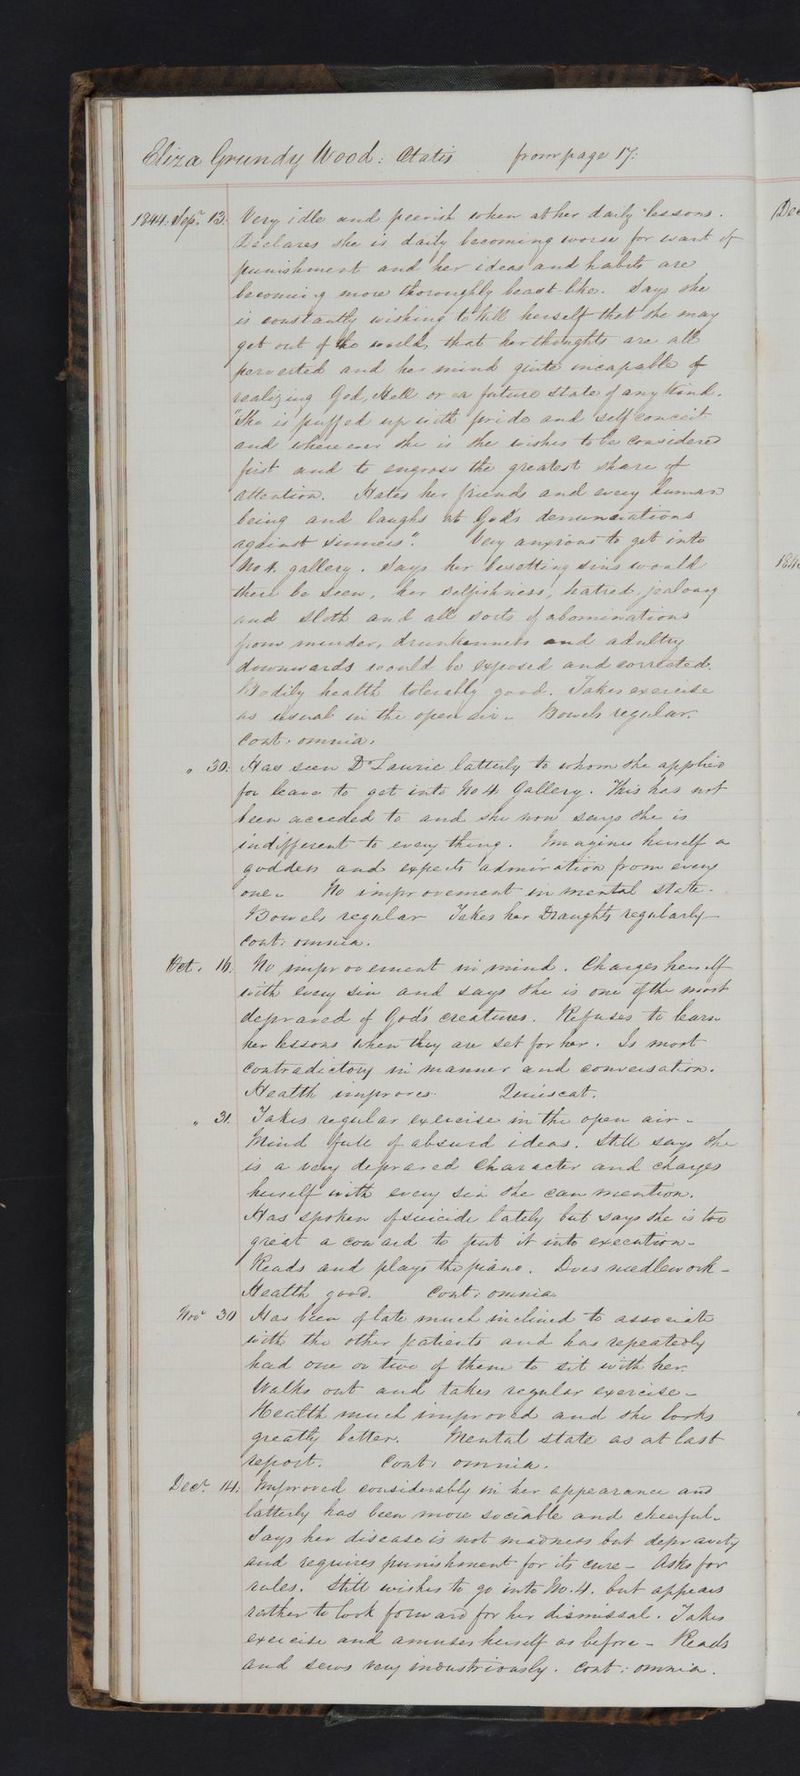 Eliza Grundy Wood: Ætatis from page 17:
1844. Sepr. 13. Very idle and peevish when at her daily lessons.
Declares she is daily becoming worse for want of
punishment and her ideas and habits are
becoming more thoroughly beast like. Says she
is constantly wishing to kill herself that she may
get out of the world, that her thoughts are all
perverted and her mind quite incapable of
realizing God, Hell or a future state of any kind.
"She is puffed up with pride and self conceit
and where ever she is she wishes to be considered
first and to engross the greatest share of
attention. Hates her friends and every human
being and laughs at God's denunciations
against sinners". Very anxious to get into
No 4. gallery. Says her besetting sins would
there be seen, her selfishness, hatred, jealousy
and sloth and all sorts of abominations
from murder, drunkenness and adultry
downwards would be exposed and corrected.
Bodily health tolerably good. Takes exercise
as usual in the open air. Bowels regular.
Cont: omnia.
" 30. Has seen Dr Laurie latterly to whom she applied
for leave to get into No 4 Gallery. This has not
been acceded to and she now says she is
indifferent to every thing. Imagines herself a
goddess and expects admiration from every
one. No improvement in mental state.
Bowels regular Takes her Draughts regularly—
Cont: omnia.
Oct. 16. No improvement in mind. Charges herself
with every sin and says she is one of the most
depraved of God's creatures. Refuses to learn
her lessons when they are set for her. Is most
contradictory in manner and conversation.
Health improves. Quiescat.
" 31. Takes regular exercise in the open air.
Mind full of absurd ideas. Still says she
is a very depraved character and charges
herself with every sin she can mention.
Has spoken of suicide lately but says she is too
great a coward to put it into execution.
Reads and plays the piano. Does needlework—
Health good. Cont: omnia
Novr 30 Has been of late much inclined to associate
with the other patients and has repeatedly
had one or two of them to sit with her.
Walks out and takes regular exercise—
Health much improved and she looks
greatly better. Mental state as at last
report. Cont: omnia.
Decr. 14. Improved considerably in her appearance and
latterly has been more sociable and cheerful.
Says her disease is not madness but depravity
and requires punishment for its cure— Asks for
rules. Still wishes to go into No. 4. but appears
rather to look forward for her dismissal. Takes
exercise and amuses herself as before— Reads
and sews very industriously. Cont: omnia.
Dec
184